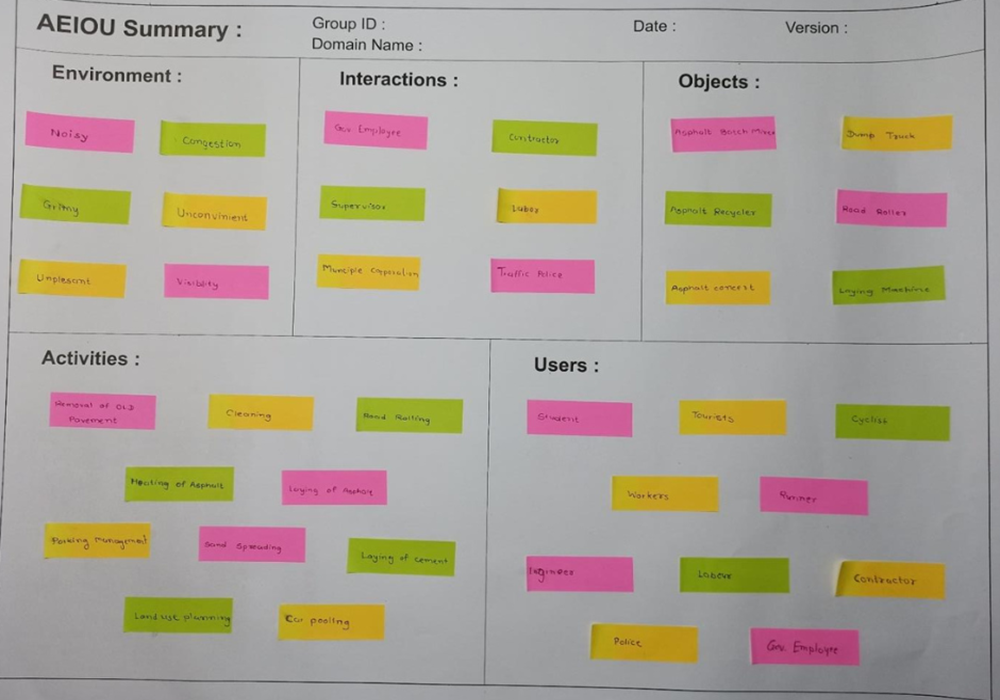 AEIOU Summary :
Group ID :
Date :
Version :
Domain Name :
Environment :
Noisy
Congestion
Grimy
Unconvinient
Unplesent
Visiblity
Interactions :
Gov Employee
Contractor
Supervisor
Labor
Municiple Corporation
Traffic Police
Objects :
Asphalt Batch Mixer
Dump Truck
Asphalt Recycler
Road Roller
Asphalt
Laying Machine
Activities :
Removal of OLD
Pavement
Cleaning
Road Rolling
Heating of Asphalt
Laying of
Parking Management
Sand Spreading
Laying of cement
Land use planning
Car pooling
Users :
Student
Tourists
Cyclist
Workers
Runner
Engineer
Labour
Contractor
Police
Gov. Employee